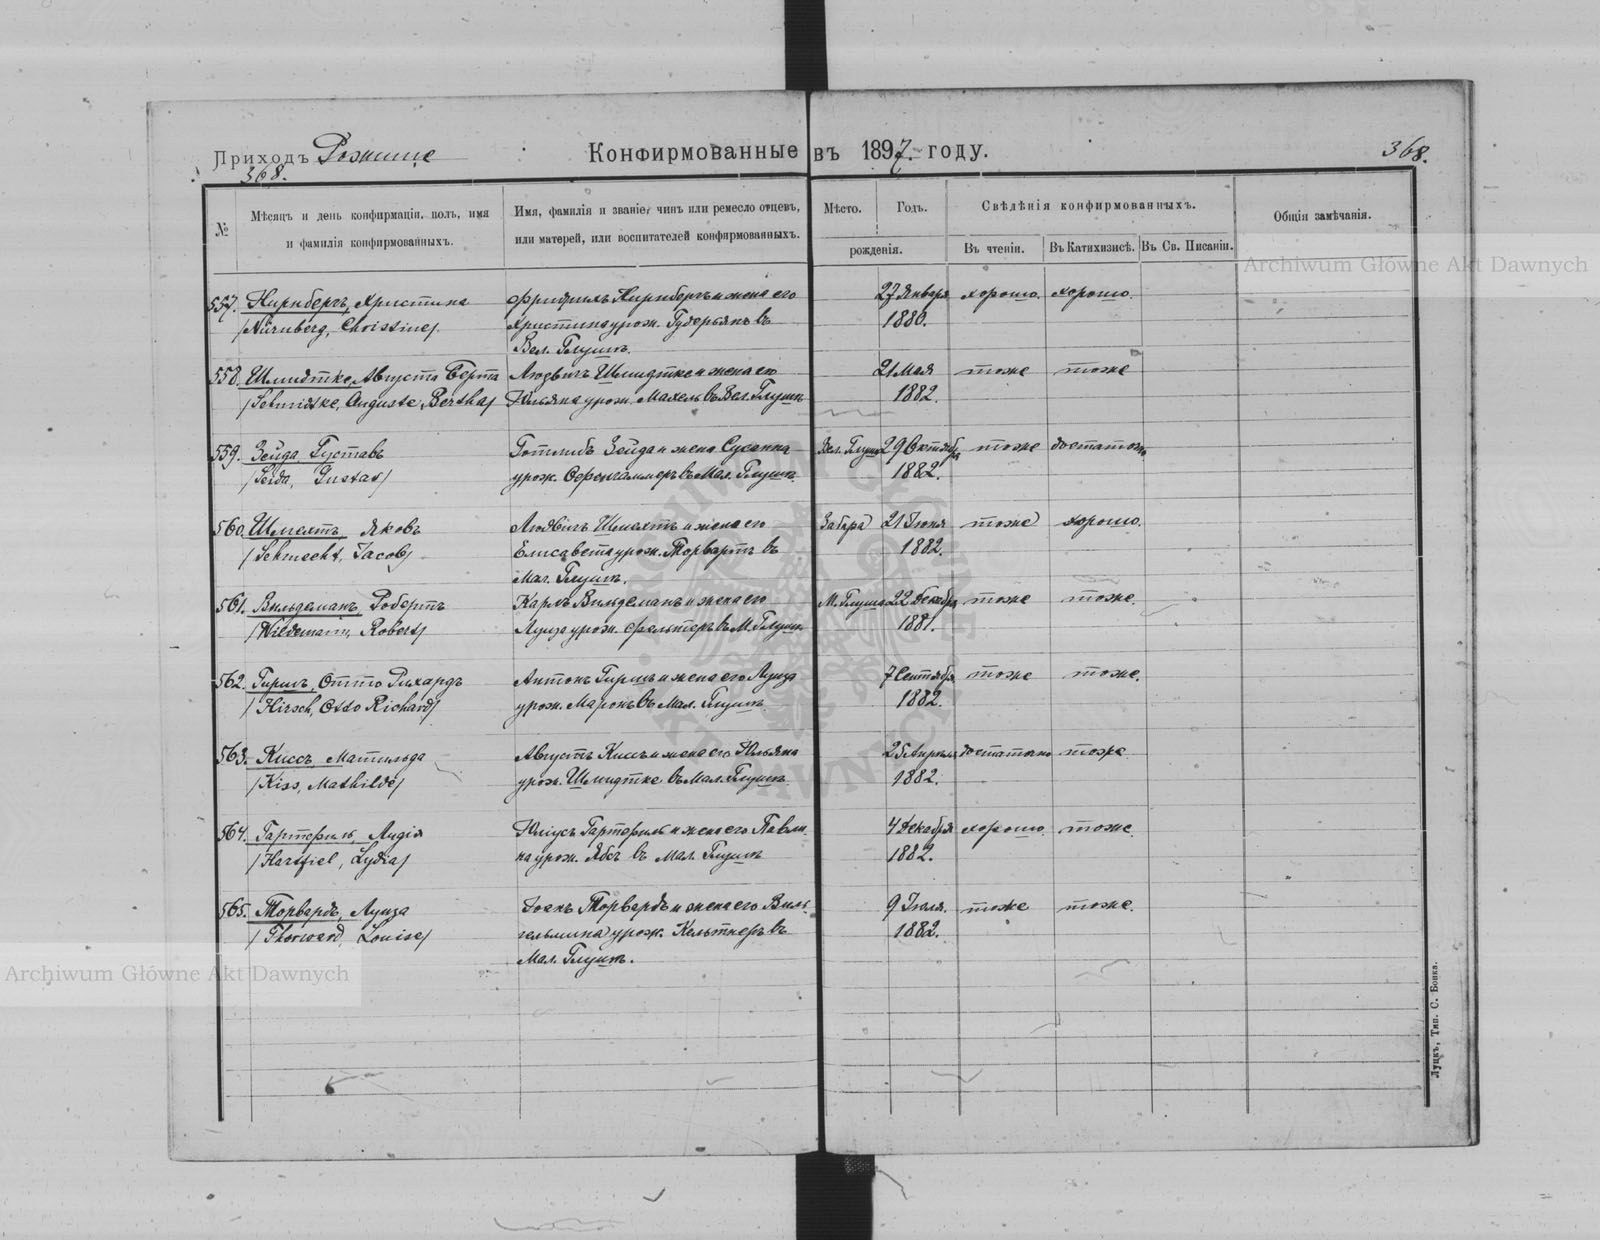 Приходъ Рожище
Конфирмованные въ 1897. году.
368.
368.
№
Мѣсяцъ и день конфирмаціи, полъ, имя
и фамилія конфирмованныхъ.
Имя, фамилія и званіе, чинъ или ремесло отцевъ,
или матерей, или воспитателей конфирмованныхъ.
Мѣсто.
Годъ.
рожденія.
Свѣдѣнія конфирмованныхъ.
Въ чтеніи.
Въ Катихизисѣ.
Въ Св. Писаніи.
Общія замѣчанія.
557. Нирнбергъ, Христина
/Nürnberg, Christine/
Фридрихъ Нирнбергъ и жена его
Христина урож. въ
Вел. Глушѣ.
27 Января
1880.
хорошо.
хорошо.
558. Шмидтке, Августа Берта
/Schmidtke, Auguste Bertha/
Людвигъ Шмидтке и жена его
Юльяна урож. Махель въ Вел. Глушѣ
21 Мая
1882.
тоже
тоже
559. Зейда, Густавъ
/Seida, Gustav/
Готлибъ Зейда и жена Сусанна
урож. въ Мал. Глушѣ
Вел. Глуша
29 Октября
1882.
тоже
достаточно
560. Шмехтъ, Яковъ
/Schmecht, Jacob/
Людвигъ Шмехтъ и жена его
Елисавета урож. Торвартъ въ
Мал. Глушѣ.
Забара
21 Іюня
1882.
тоже
хорошо.
561. Вильдеманъ, Робертъ
/Wildemann, Robert/
Карлъ Вильдеманъ и жена его
Луиза урож. Фельтеръ въ М. Глушѣ
М. Глуша
22 Декабря
1881.
тоже
тоже.
562. Гиршъ, Отто Рихардъ
/Hirsch, Otto Richard/
Антонъ Гиршъ и жена его Луиза
урож. Маронъ въ Мал. Глушѣ
7 Сентября
1882.
тоже
тоже.
563. Киссъ Матильда
/Kiss, Mathilde/
Августъ Киссъ и жена его Юльяна
урож. Шмидтке въ Мал. Глушѣ
25 Апрѣля
1882.
достаточно
тоже
564. Гартфиль, Лидія
/Hartfiel, Lydia/
Юліусъ Гартфиль и жена его Павли
на урож. Ябсъ въ Мал. Глушѣ
4 Декабря
1882.
хорошо
тоже.
565. Торвардъ, Луиза
/Thorward, Louise/
Іоанъ Торвардъ и жена его Виль-
гельмина урож. Кельтнеръ въ
Мал. Глушѣ.
9 Іюля.
1882.
тоже
тоже.
Луцкъ, Тип. С. Бонка.
Archiwum Główne Akt Dawnych
Archiwum Główne Akt Dawnych